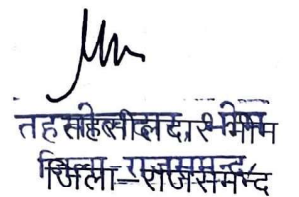 तहसीलदार भीम
जिला-राजसमन्द